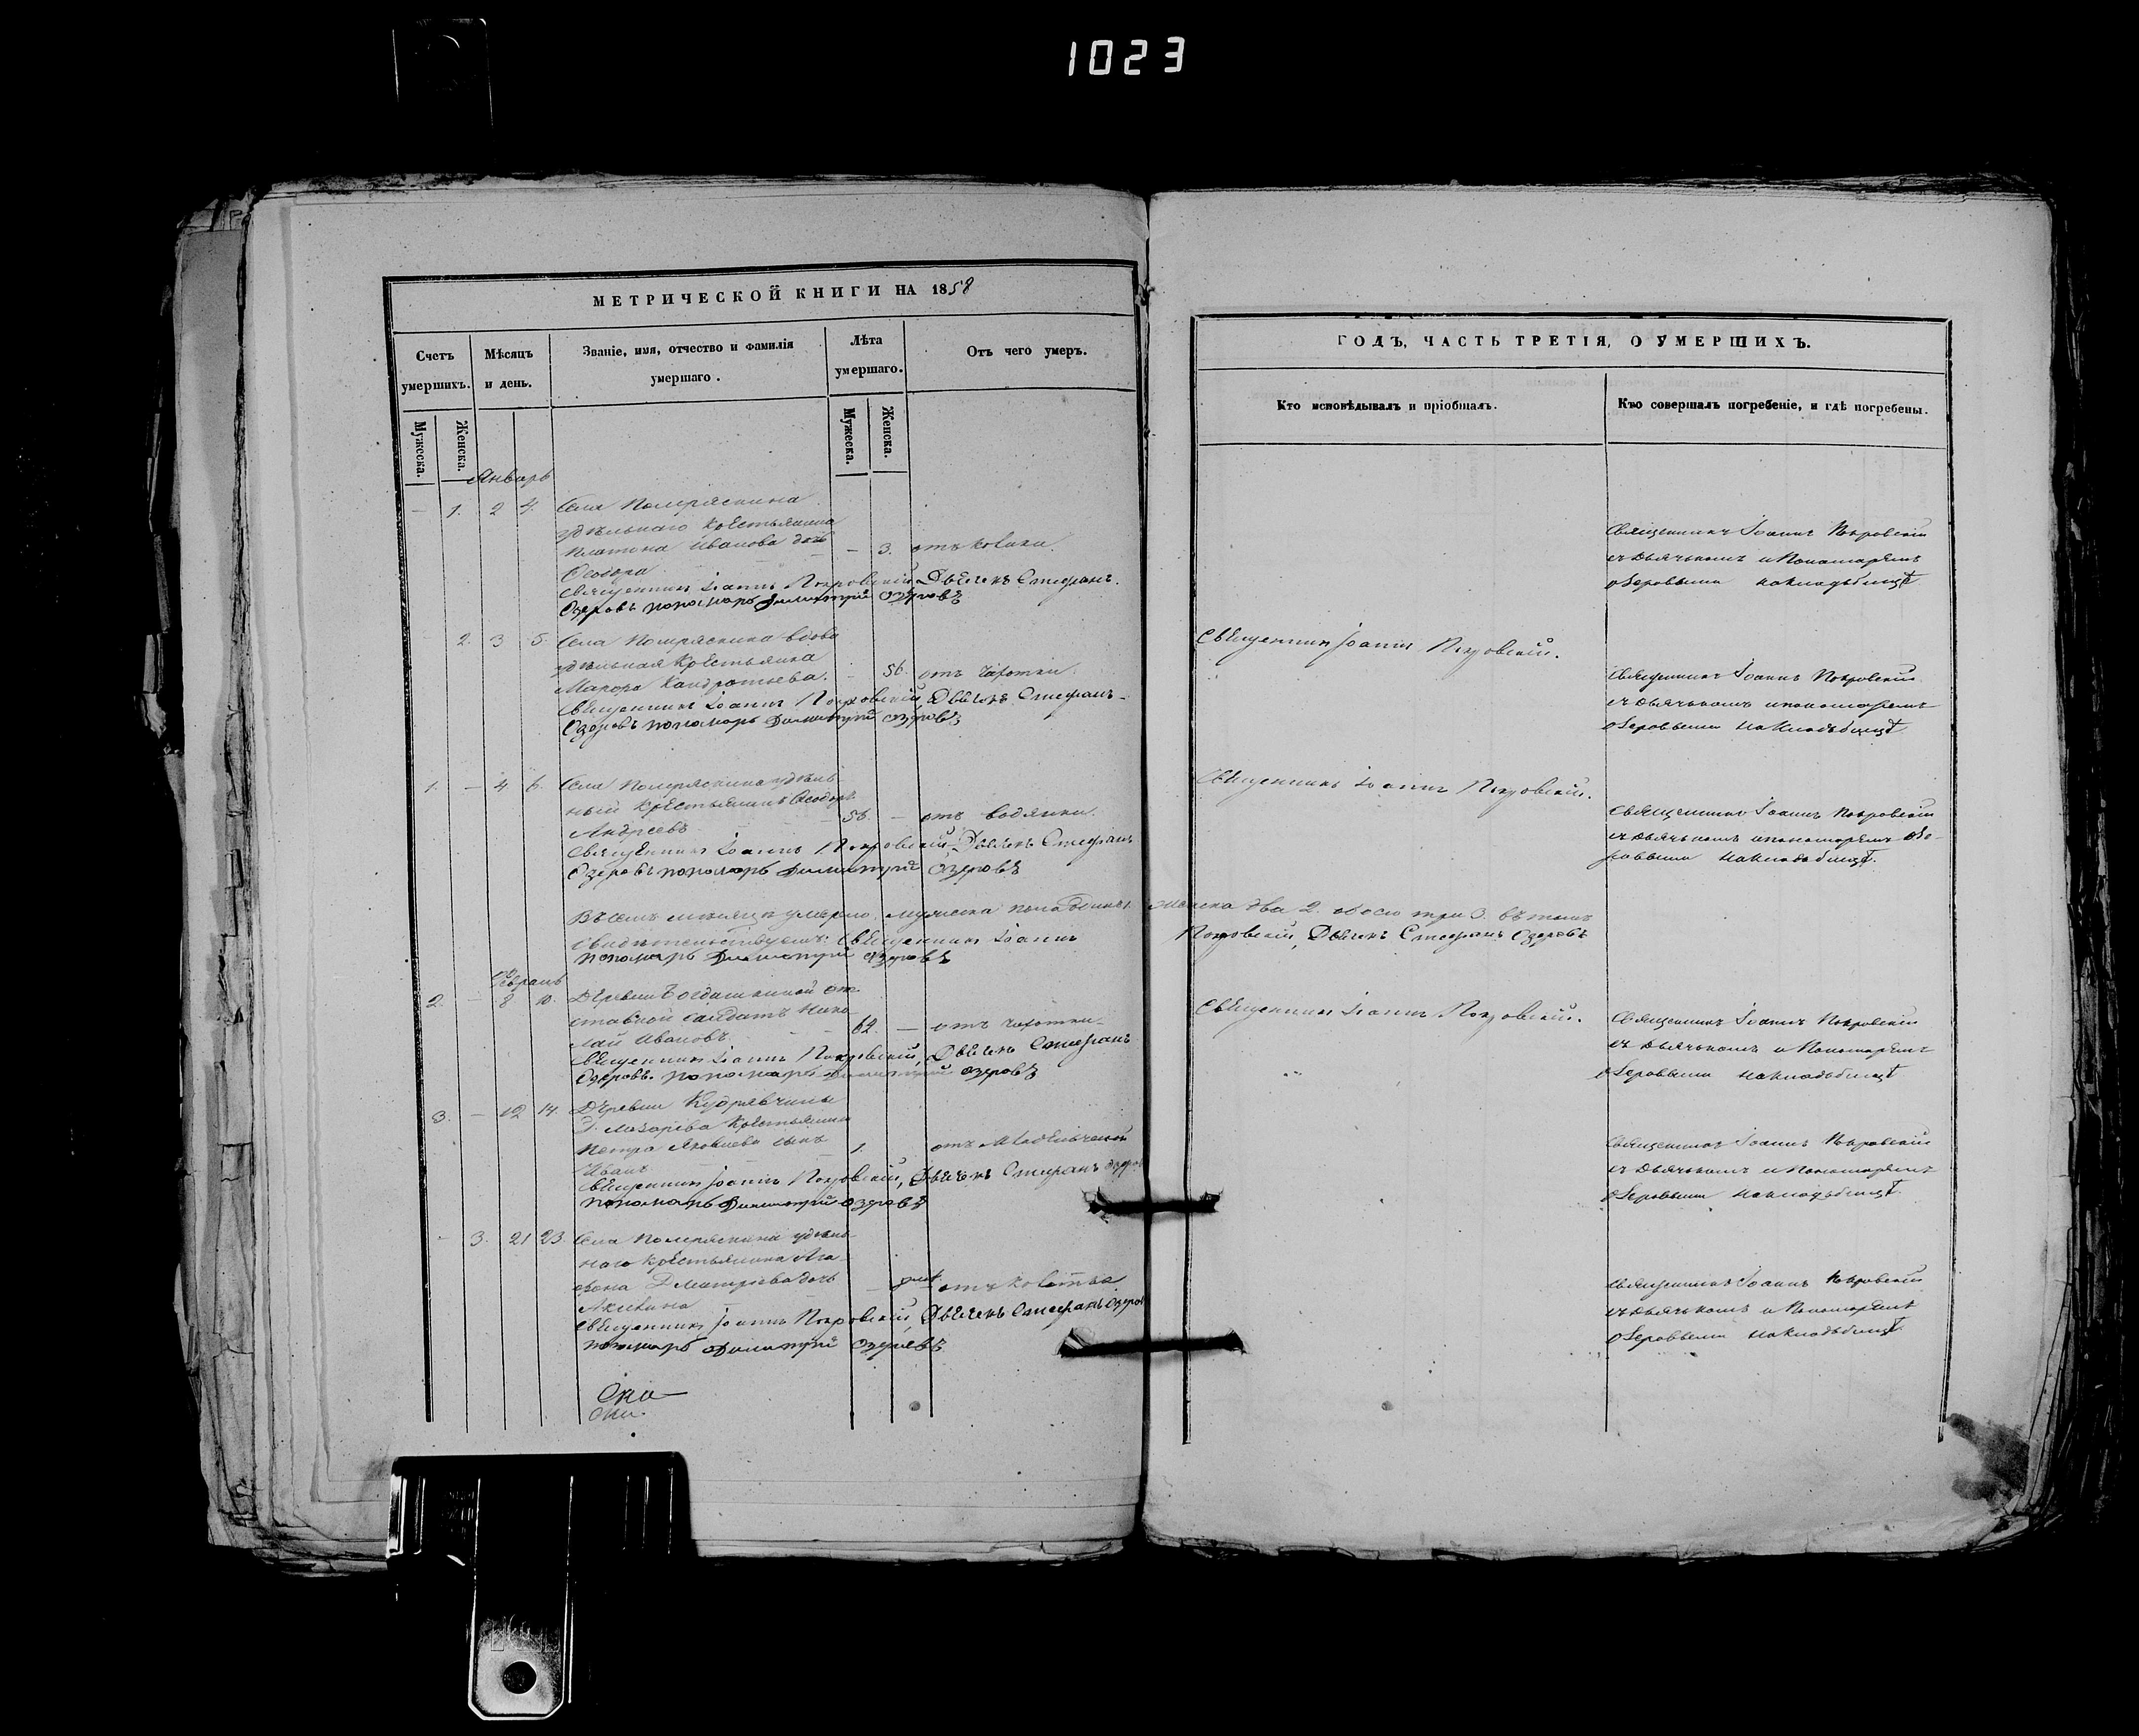 1023
МЕТРИЧЕСКОЙ КНИГИ НА 1858
Счетъ умершихъ.
Мѣсяцъ и день.
Званіе, имя, отчество и фамилія умершаго.
Лѣта умершаго.
Отъ чего умеръ.
Мужеска.
Женска.
Мужеска.
Женска.
Январь
— 1. 2 4. Села Помряскина
удѣльнаго крестьянина
Платона Иванова дочь — 3. отъ
Ѳеодора
Священникъ Іоаннъ Покровскій, Дьячекъ Стефанъ
Озеровъ пономарь Димитрій Озеровъ
2. 3 5. Села Помряскина вдова
удѣльная крестьянка
Кандратьева. — 56. отъ чахотки.
Священникъ Іоаннъ Покровскій, Дьячекъ Стефанъ
Озеровъ пономарь Димитрій Озеровъ
1. — 4 6. Села Помряскина удѣль-
ный крестьянинъ Ѳеодоръ
Андреевъ 56. — отъ водянки.
Священникъ Іоаннъ Покровскій Дьячекъ Стефанъ
Озеровъ пономарь Димитрій Озеровъ
Въ семъ мѣсяцѣ умерло мужеска пола одинъ 1. женска два 2. обоего три 3. въ томъ
свидѣтельствуемъ: Священникъ Іоаннъ Покровскій, Дьячекъ Стефанъ Озеровъ
пономарь Димитрій Озеровъ
2. — 8 10. Деревни от-
ставной салдатъ Нико-
лай Ивановъ 62. — отъ чахотки
Священникъ Іоаннъ Покровскій, Дьячекъ Стефанъ
Озеровъ. пономарь Димитрій Озеровъ
3. — 12 14. Деревни
Г. Лазарева крестьянина
Петра Яковлева сынъ 1. отъ
Иванъ
Священникъ Іоаннъ Покровскій, Дьячекъ Стефанъ Озеровъ
пономарь Димитрій Озеровъ
— 3. 21 23. Села Помряскина удѣль-
наго крестьянина
Дмитріева дочь — отъ
Акилина
Священникъ Іоаннъ Покровскій, Дьячекъ Стефанъ Озеровъ
пономарь Димитрій Озеровъ
ГОДЪ, ЧАСТЬ ТРЕТІЯ, О УМЕРШИХЪ.
Кто исповѣдывалъ и пріобщалъ.
Кто совершалъ погребеніе, и гдѣ погребены.
Священникъ Іоаннъ Покровскій
съ Дьячькомъ и Пономаремъ
Озеровыми на кладьбищѣ
Священникъ Іоаннъ Покровскій.
Священникъ Іоаннъ Покровскій
съ Дьячькомъ и пономаремъ
Озеровыми на кладьбищѣ
Священникъ Іоаннъ Покровскій.
Священникъ Іоаннъ Покровскій
съ Дьячькомъ и пономаремъ Озе-
ровыми на кладьбищѣ.
Священникъ Іоаннъ Покровскій.
Священникъ Іоаннъ Покровскій
съ Дьячькомъ и Пономаремъ
Озеровыми на кладьбищѣ
Священникъ Іоаннъ Покровскій
съ Дьячькомъ и Пономаремъ
Озеровыми на кладьбищѣ.
Священникъ Іоаннъ Покровскій
съ Дьячькомъ и Пономаремъ
Озеровыми на кладьбищѣ